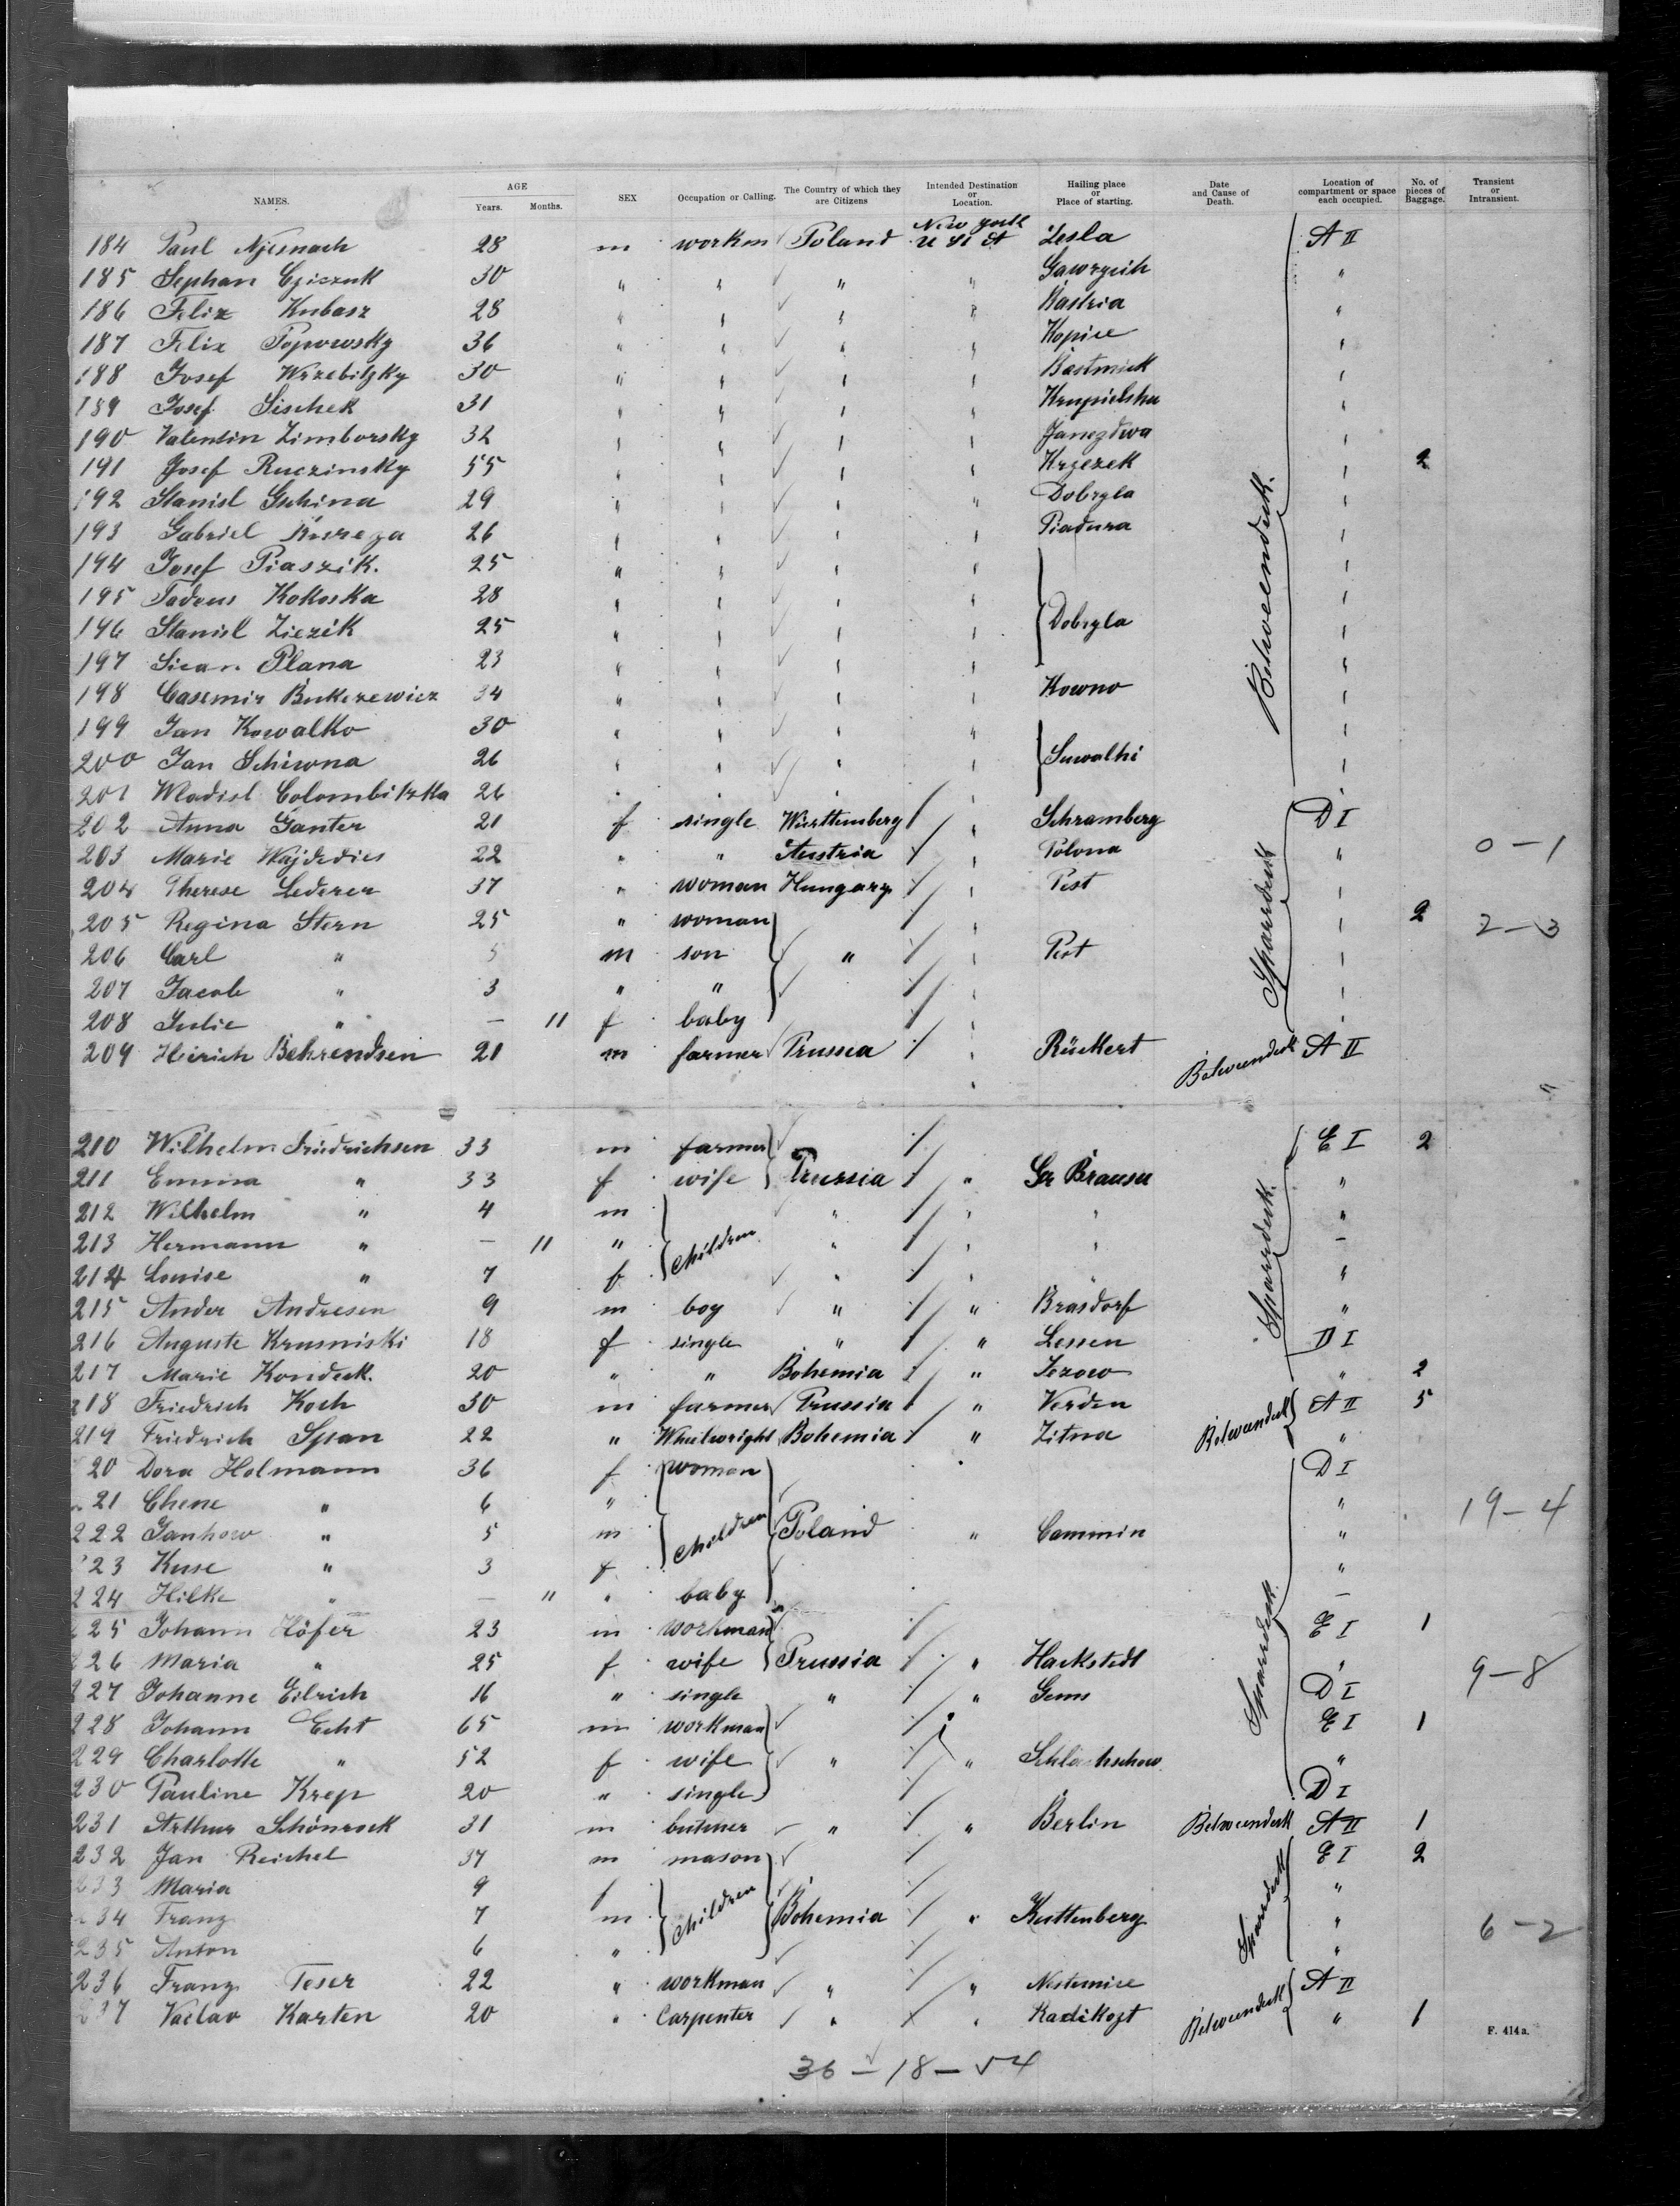 NAMES. AGE Years. Months. SEX Occupation or Calling. The Country of which they are Citizens Intended Destination or Location. Hailing place or Place of starting. Date and Cause of Death. Location of compartment or space each occupied. No. of pieces of Baggage. Transient or Intransient.
184 Paul 28 m workm Poland New York U St A Lesla A II
185 Sephan Cziczuk 30 " " " " "
186 Felix Kubasz 28 " " " " Kastria "
187 Felix Popowsky 36 " " " " Kopice "
188 Josef Wrzebitzky 30 " " " " "
189 Josef Sischek 31 " " " " "
190 Valentin Zimborsky 32 " " " " "
191 Josef Ruczinsky 55 " " " " Krzezek " 2
192 Stanisl Gschina 29 " " " " Dobryla "
193 Gabriel 26 " " " " Piadura "
194 Josef Piaszik. 25 " " " " "
195 Tadeus Kokoska 28 " " " " "
196 Stanisl Ziezik 25 " " " " Dobryla "
197 Plana 23 " " " " "
198 Casemir 34 " " " " Kowno " Betweendeck.
199 Jan Kowalko 30 " " " " "
200 Jan Schiwna 26 " " " " Suwalki "
201 Wladisl 26 " " " "
202 Anna Ganter 21 f single Württemberg " Schramberg D I
203 Marie 22 " " Austria " Polona " 0-1
204 Therese Lederer 37 " woman Hungary " Pest "
205 Regina Stern 25 " woman " " 2 2-3
206 Carl " 5 m son " " Pest "
207 Jacob " 3 " " " " Sparrdeck
208 Julie " — 11 f baby " "
209 Heirich Behrendsen 21 m farmer Prussia " Rückert Betweendeck A II
210 Wilhelm Friedrichsen 33 m farmer E I 2
211 Emma " 33 f wife Prussia " "
212 Wilhelm " 4 m " " " "
213 Hermann " — 11 " children " " " –
214 Louise " 7 f " " " Sparrdeck.
215 Ander Andresen 9 m boy " " Brasdorf "
216 Auguste Krusniski 18 f single " " Lessen D I
217 Marie Kondeck. 20 " " Bohemia " Jezow " 2
218 Friedrich Koch 30 m farmer Prussia " Verden Betweendeck A II 5
219 Friedrich Span 22 " Wheelwright Bohemia " Zitna "
220 Dora Holmann 36 f woman D I
221 Chene " 6 " " 19-4
222 Jankow " 5 m children Poland " Cammin "
223 Kuse " 3 f "
224 Hilke " — 11 " baby –
225 Johann Höfer 23 m workman E I 1
226 Maria " 25 f wife Prussia " Hackstedt " 9-8
227 Johanne Eilrich 16 " single " " D I Sparrdeck
228 Johann Echt 65 m workman E I 1
229 Charlotte " 52 f wife " " "
230 Pauline Krep 20 " single D I
231 Arthur Schönrock 31 m butcher " " Berlin Betweendeck A II 1
232 Jan Reichel 37 m mason E I 2
233 Maria 9 f "
234 Franz 7 m children Bohemia " Kuttenberg Sparrdeck " 6-2
235 Anton 6 " "
236 Franz Teser 22 " workman " " Nestemice A II
237 Vaclav Karten 20 " Carpenter " " Betweendeck " 1
F. 414a.
36-18-54